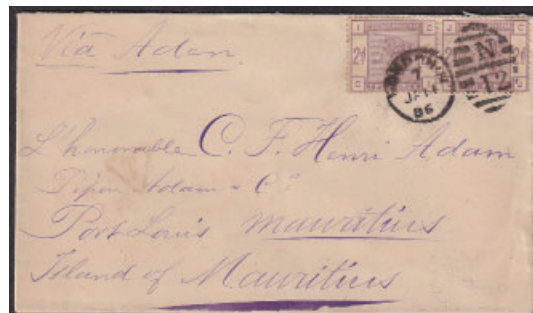 Via Aden
LONDON
7
JA 14
86
N
12
L'honorable C. F. Henri Adam
Pipon Adam & Co
Port Louis Mauritius
Island of Mauritius